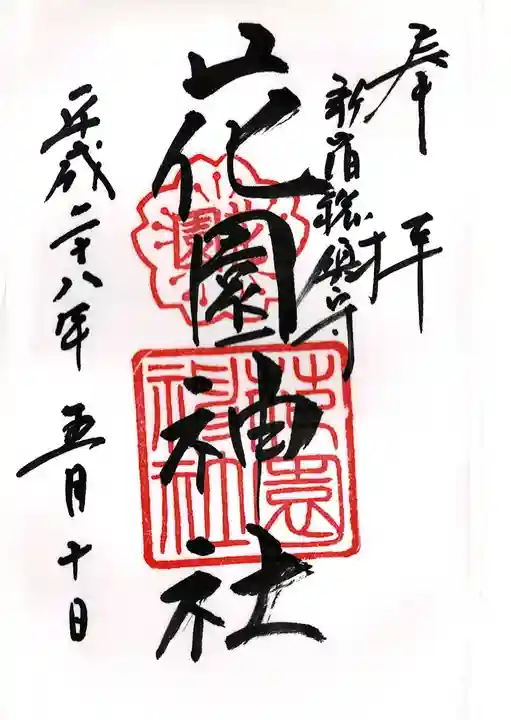 奉拝
新宿総鎮守
花園神社
花園
花園神社
平成二十八年五月十日